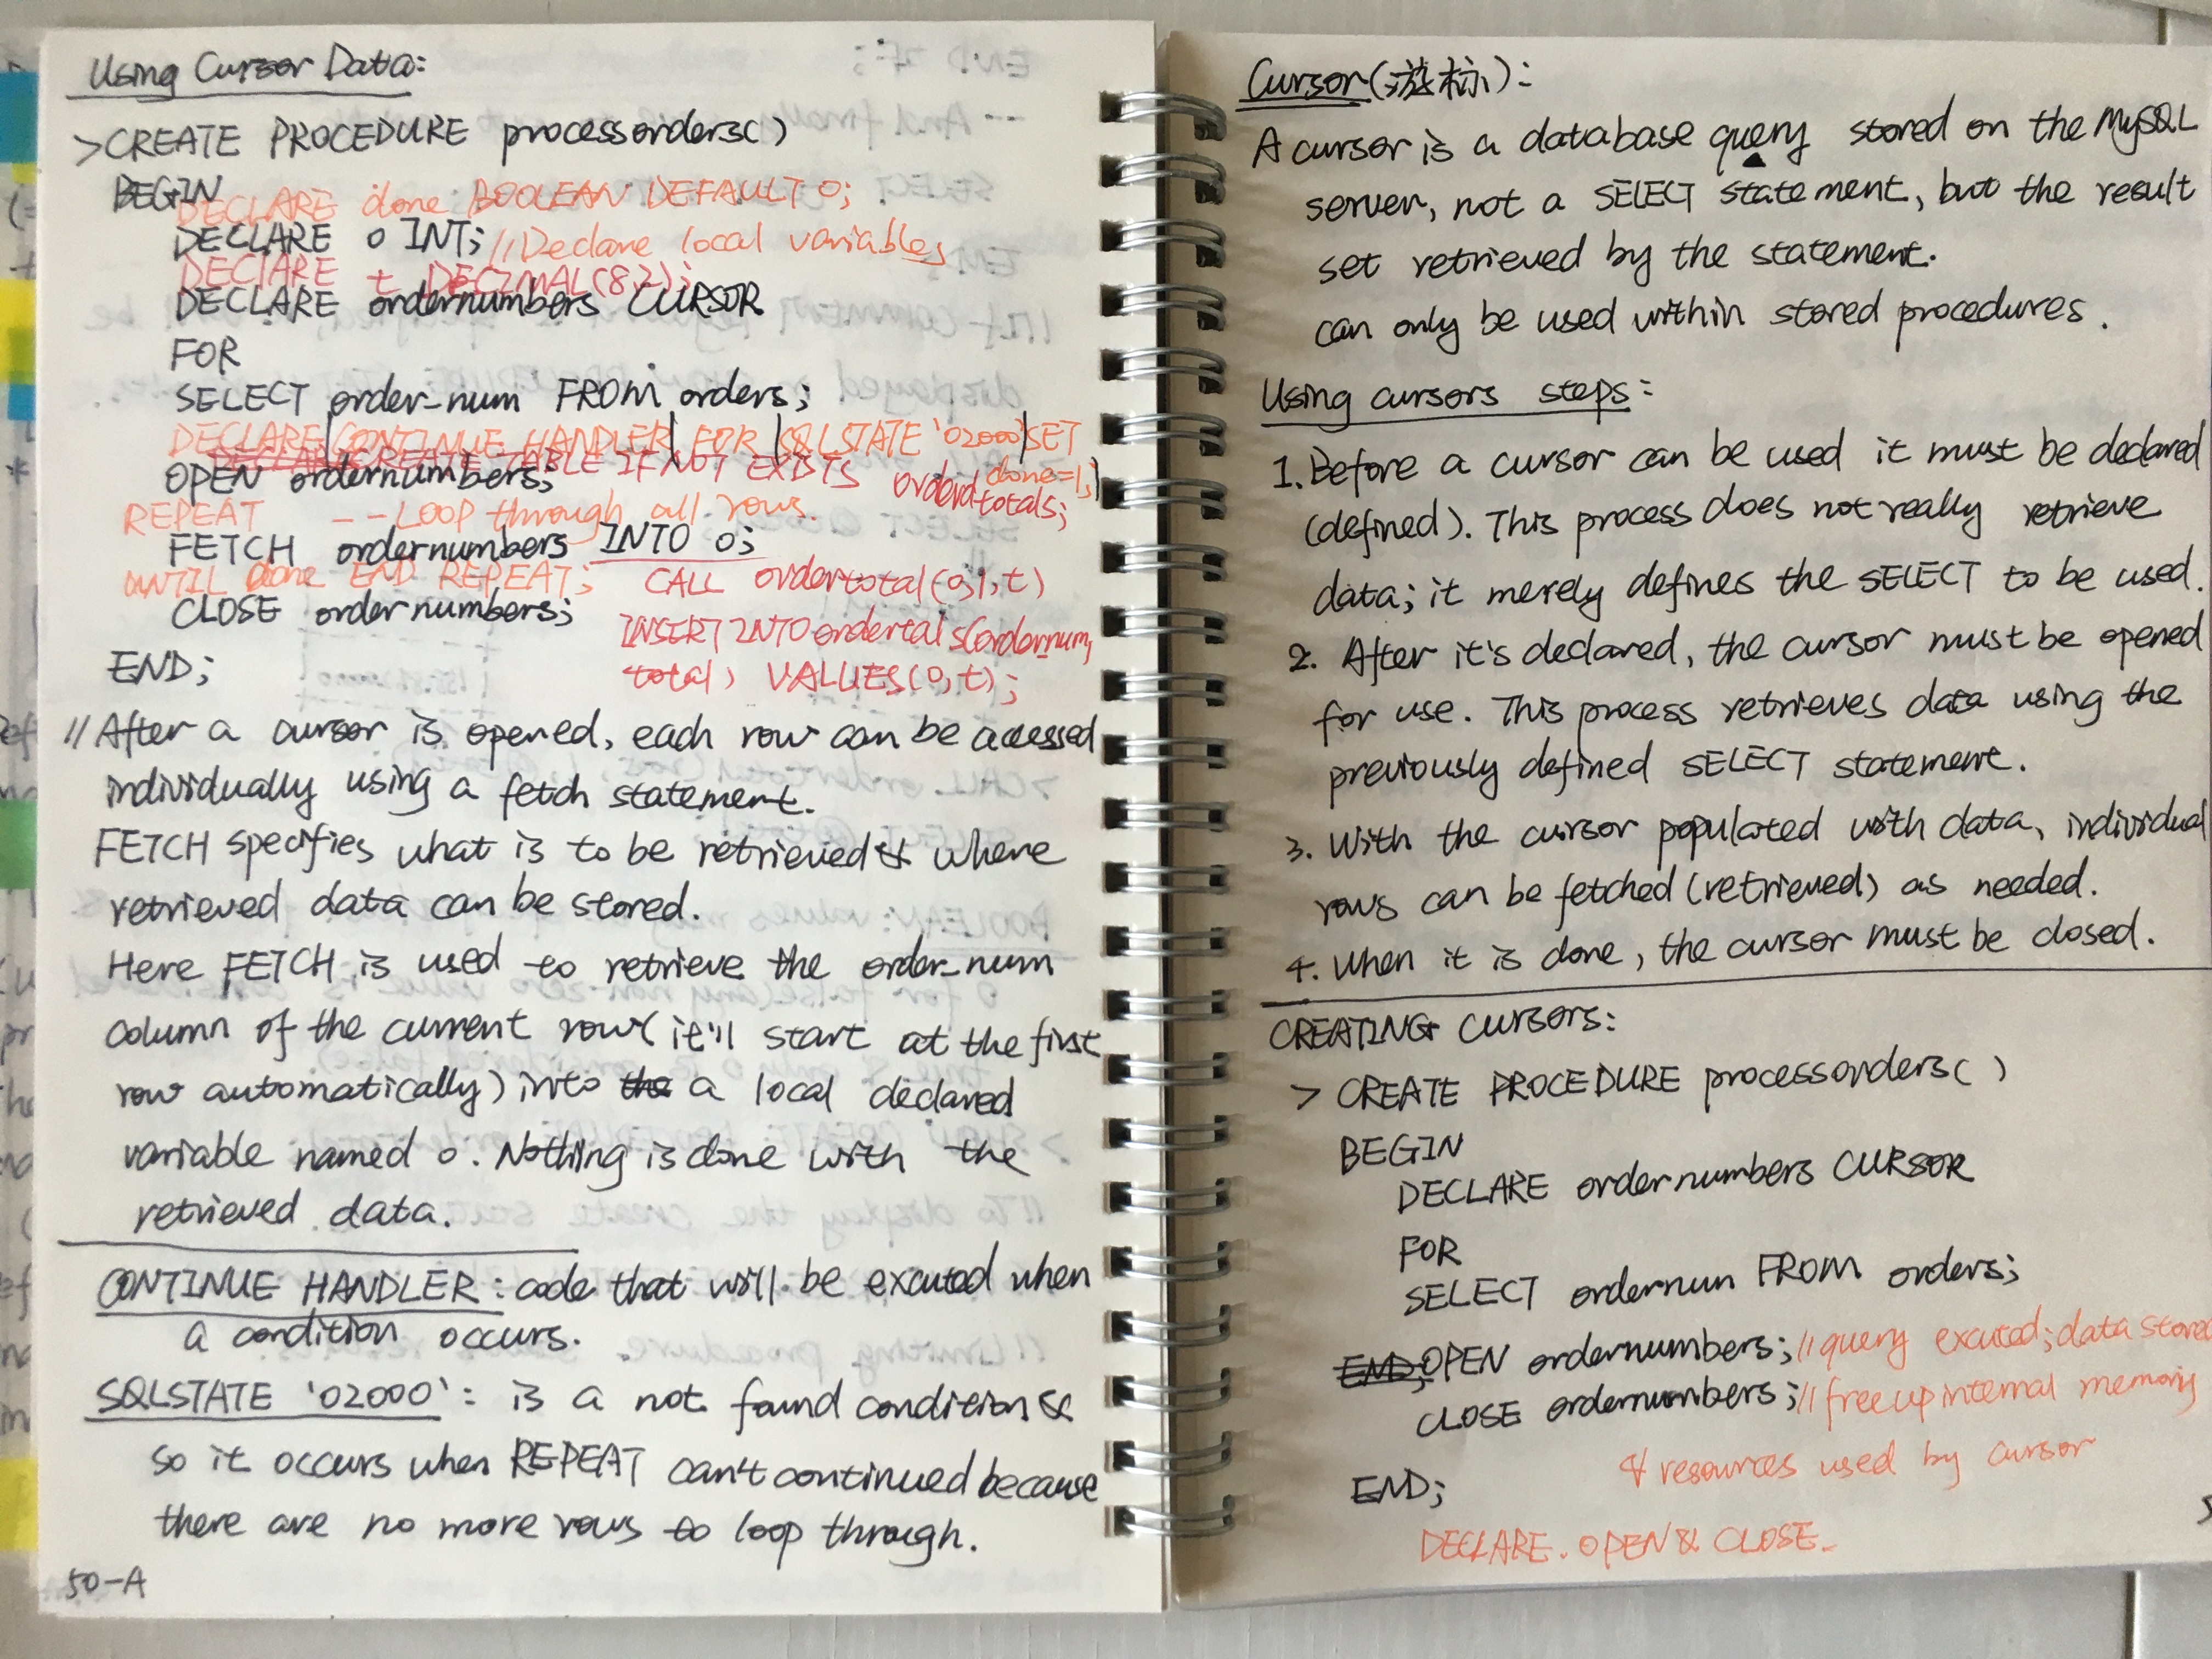 Using Cursor Data:
>CREATE PROCEDURE processorders()
BEGIN
DECLARE done BOOLEAN DEFAULT 0;
DECLARE o INT; //Declare local variables
DECLARE t DECIMAL(8,2);
DECLARE ordernumbers CURSOR
FOR
SELECT order_num FROM orders;
DECLARE CONTINUE HANDLER FOR SQLSTATE '02000' SET
done=1;
CREATE TABLE IF NOT EXISTS
orderdtotals;
OPEN ordernumbers;
REPEAT --Loop through all rows.
FETCH ordernumbers INTO o;
UNTIL done END REPEAT; CALL ordertotal(o,1,t)
CLOSE ordernumbers;
INSERT INTO ordertals(ordernum,
END; total) VALUES(o,t);
//After a cursor is opened, each row can be accessed
individually using a fetch statement.
FETCH specifies what is to be retrieved & where
retrieved data can be stored.
Here FETCH is used to retrieve the order_num
column of the current row(it'll start at the first
row automatically) into the a local declared
variable named o. Nothing is done with the
retrieved data.
CONTINUE HANDLER: code that will be excuted when
a condition occurs.
SQLSTATE '02000': is a not found condition &
so it occurs when REPEAT can't continued because
there are no more rows to loop through.
50-A
Cursor(游标):
A cursor is a database query stored on the MySQL
server, not a SELECT statement, but the result
set retrieved by the statement.
can only be used within stored procedures.
Using cursors steps:
1. Before a cursor can be used it must be declared
(defined). This process does not really retrieve
data; it merely defines the SELECT to be used.
2. After it's declared, the cursor must be opened
for use. This process retrieves data using the
previously defined SELECT statement.
3. With the cursor populated with data, individual
rows can be fetched (retrieved) as needed.
4. When it is done, the cursor must be closed.
CREATING Cursors:
> CREATE PROCEDURE processorders()
BEGIN
DECLARE ordernumbers CURSOR
FOR
SELECT ordernum FROM orders;
END; OPEN ordernumbers; //query excuted; data stored
CLOSE ordernumbers; //free up internal memory
& resources used by cursor
END;
DECLARE. OPEN & CLOSE.